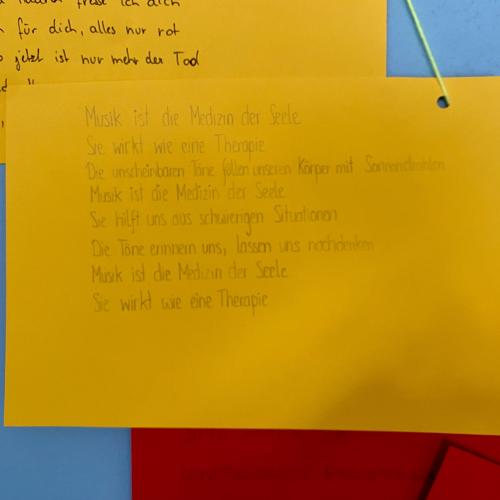 fresse ich dich
für dich, alles nur rot
jetzt ist nur mehr der Tod
Musik ist die Medizin der Seele
Sie wirkt wie eine Therapie
Die unscheinbaren Töne füllen unseren Körper mit Sonnenstrahlen
Musik ist die Medizin der Seele
Sie hilft uns aus schwierigen Situationen
Die Töne erinnern uns, lassen uns nachdenken
Musik ist die Medizin der Seele
Sie wirkt wie eine Therapie